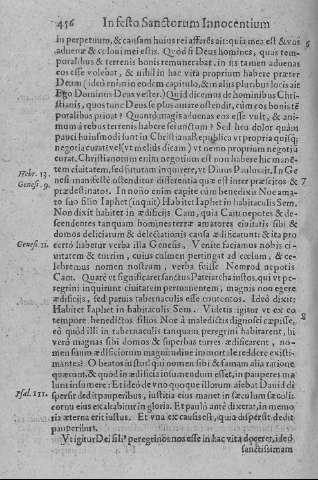 456 In festo Sanctorum Innocentium
in perpetuum, & causam huius rei afferès ait: quia mea est & vos
aduenæ & coloni mei estis. Quòd si Deus homines, quas tem-
poralibus & terrenis bonis remunerabat, in iis tamen aduenas
eos esse volebat, & nihil in hac vita proprium habere præter
Deum (ideò enim in eodem capitulo, & in aliis pluribus locis ait
Ego Dominus Deus vester.) Quid dicemus de hominibus Chri-
stianis, quos tunc Deus se plus amare ostendit, cùm eos bonis tē
poralibus priuat? Quando magis aduenas eos esse vult, & ani-
mum à rebus terrenis habere seiunctum? Sed heu dolor quàm
pauci huiusmodi sunt in Christiana Republica vt propria quisq;
negotia curat vel (vt meliùs dicam) vt nemo proprium negotiū
curat. Christianorum enim negotium est non habere hic manē-
tem ciuitatem, sed futuram inquirere, vt Diuus Paulus ait. In Ge
Hebr. 13.
nesi manifestè ostenditur differentia quæ est inter præscitos &
Genes. 9.
7
prædestinatos. In nono enim capite cum benedixit Noe ama-
to suo filio Iaphet (inquit) Habitet Iaphet in habitaculis Sem.
Non dixit habitet in ædificijs Cam, quia Cam nepotes & de-
scendentes tanquam homines terræ amatores ciuitates sibi &
domos deliciarum & delectationis causa ædificarunt: & ita pro
certò habetur verba illa Genesis. Venite faciamus nobis ci-
Genes. 11.
uitatem & turrim, cuius culmen pertingat ad cœlum, & ce-
lebremus nomen nostrum, verba fuisse Nemrod nepotis
Cam. Quare vt significaret sanctus Patriarcha iustos, qui vt pe-
regrini inquirunt ciuitatem permanentem, magnis non egere
ædificijs, sed paruis tabernaculis esse contentos. Ideò dixit:
Habitet Iaphet in habitaculis Sem. Videtis igitur vt ex eo
tempore benedictos filios Noe à maledictis dignosci cæpisse,
8
eò quòd illi in tabernaculis tanquam peregrini habitarent, hi
verò magnas sibi domos & superbas turres ædificarent, no-
men suum ædificiorum magnitudine immortale reddere existi-
mantes? O beatos iustos qui nomen sibi & famam alia ratione
quærunt, & quòd in ædificia insumendum esset, in pauperes ma
lunt insumere: Et ideò de vno quoque illorum aiebat Dauid di
spersit dedit pauperibus, iustitia eius manet in sæculum sæculi:
Psal. 111.
cornu eius exaltabitur in gloria. Et paulò antè dixerat, in memo
ria æterna erit iustus. Et vna ex causis est, quia dispersit dedit
pauperibus.
Vt igitur Dei filiꝰ peregrinos nos esse in hac vita doceret, ideò
sanctissimam